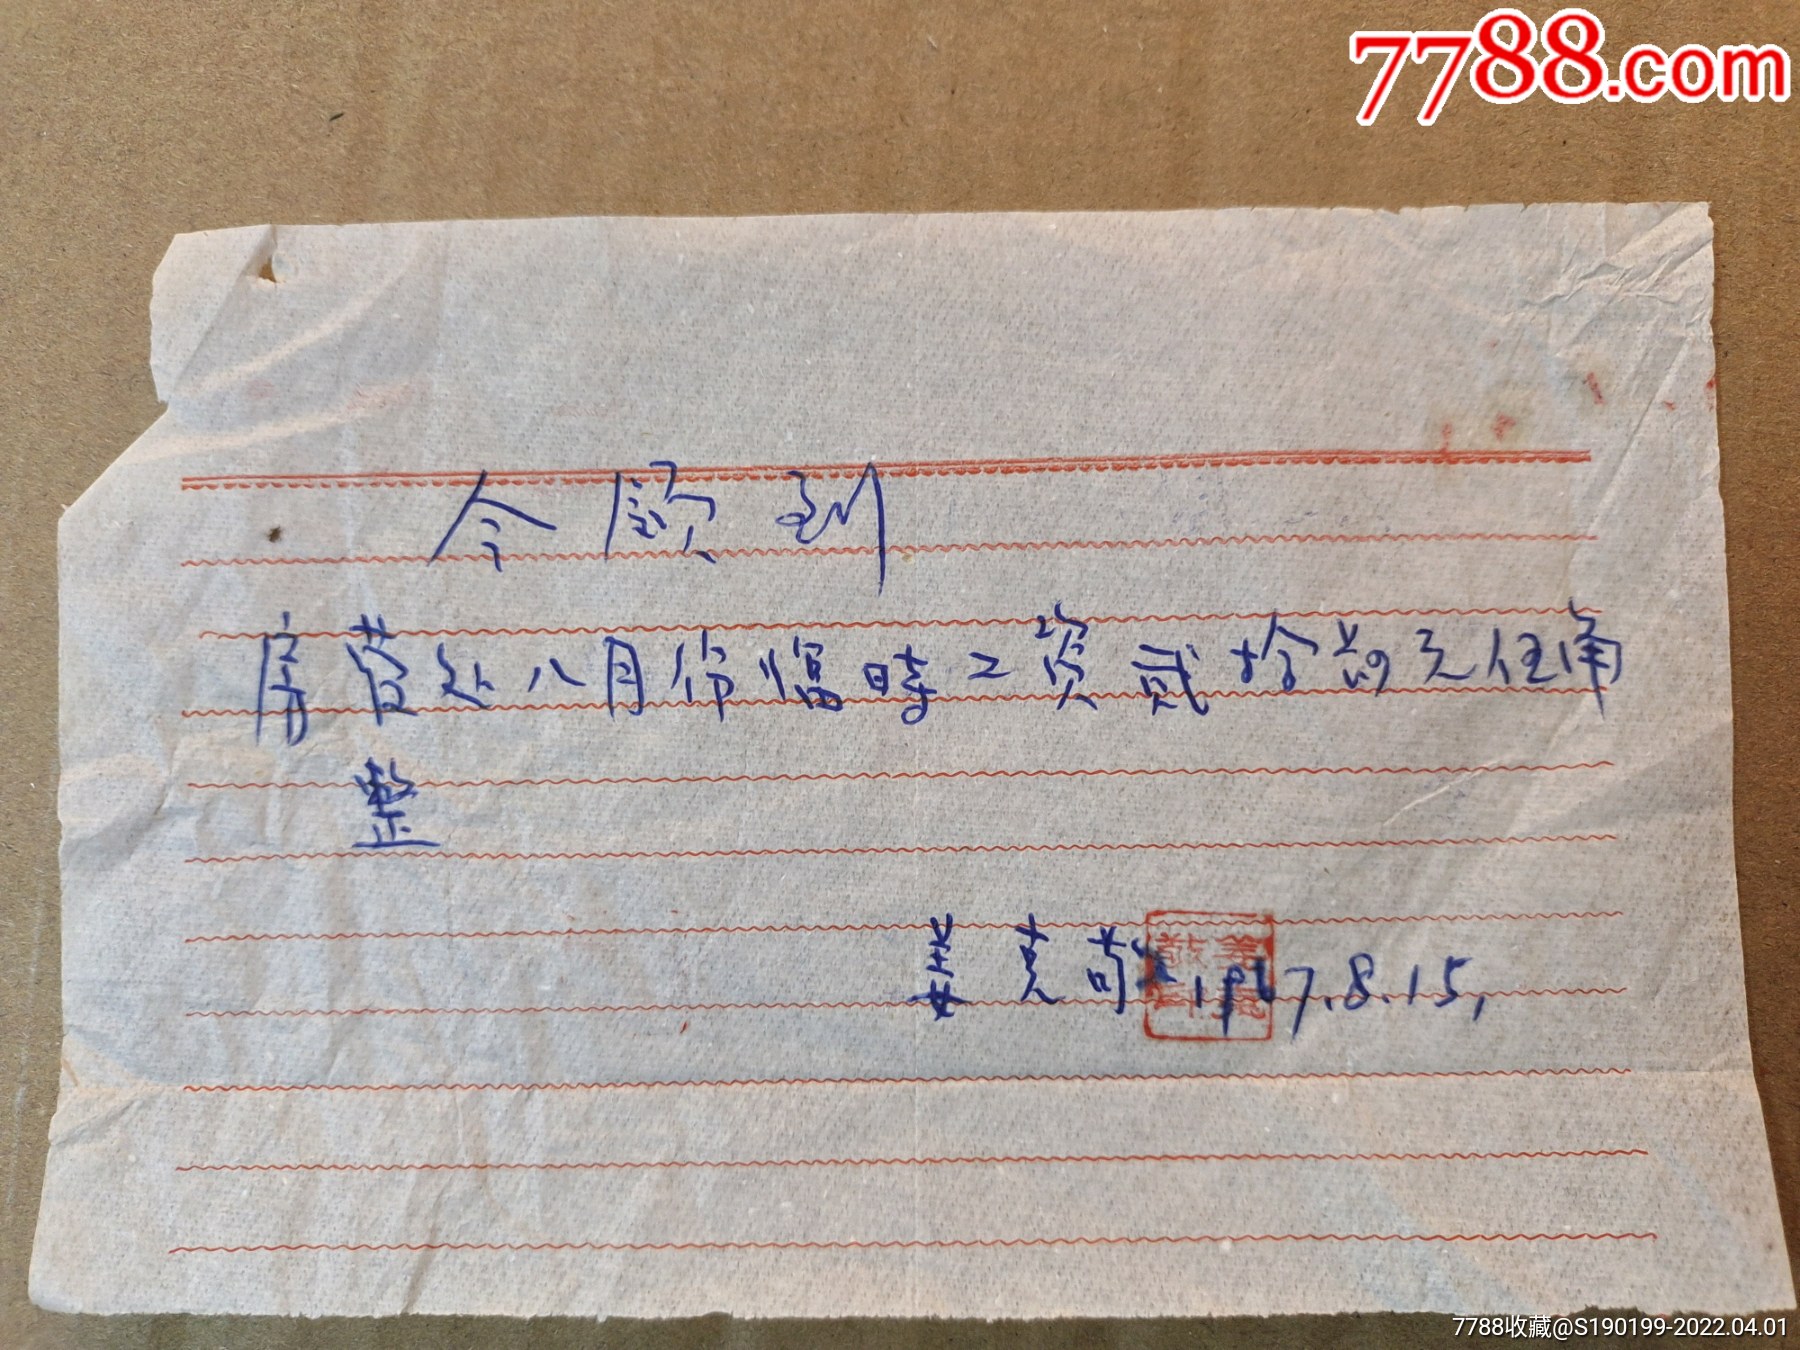 7788.com
今领到
房管处八月份临時工资貳拾 元伍角
整
姜克敬 1967.8.15,
7788收藏@S190199-2022.04.01